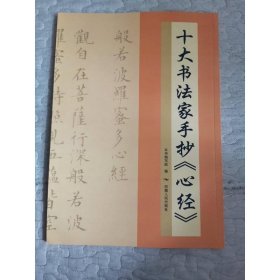 十大书法家手抄《心经》
般若波羅蜜多心經
觀自在菩薩行深般若波
羅蜜多時照見五蘊皆空